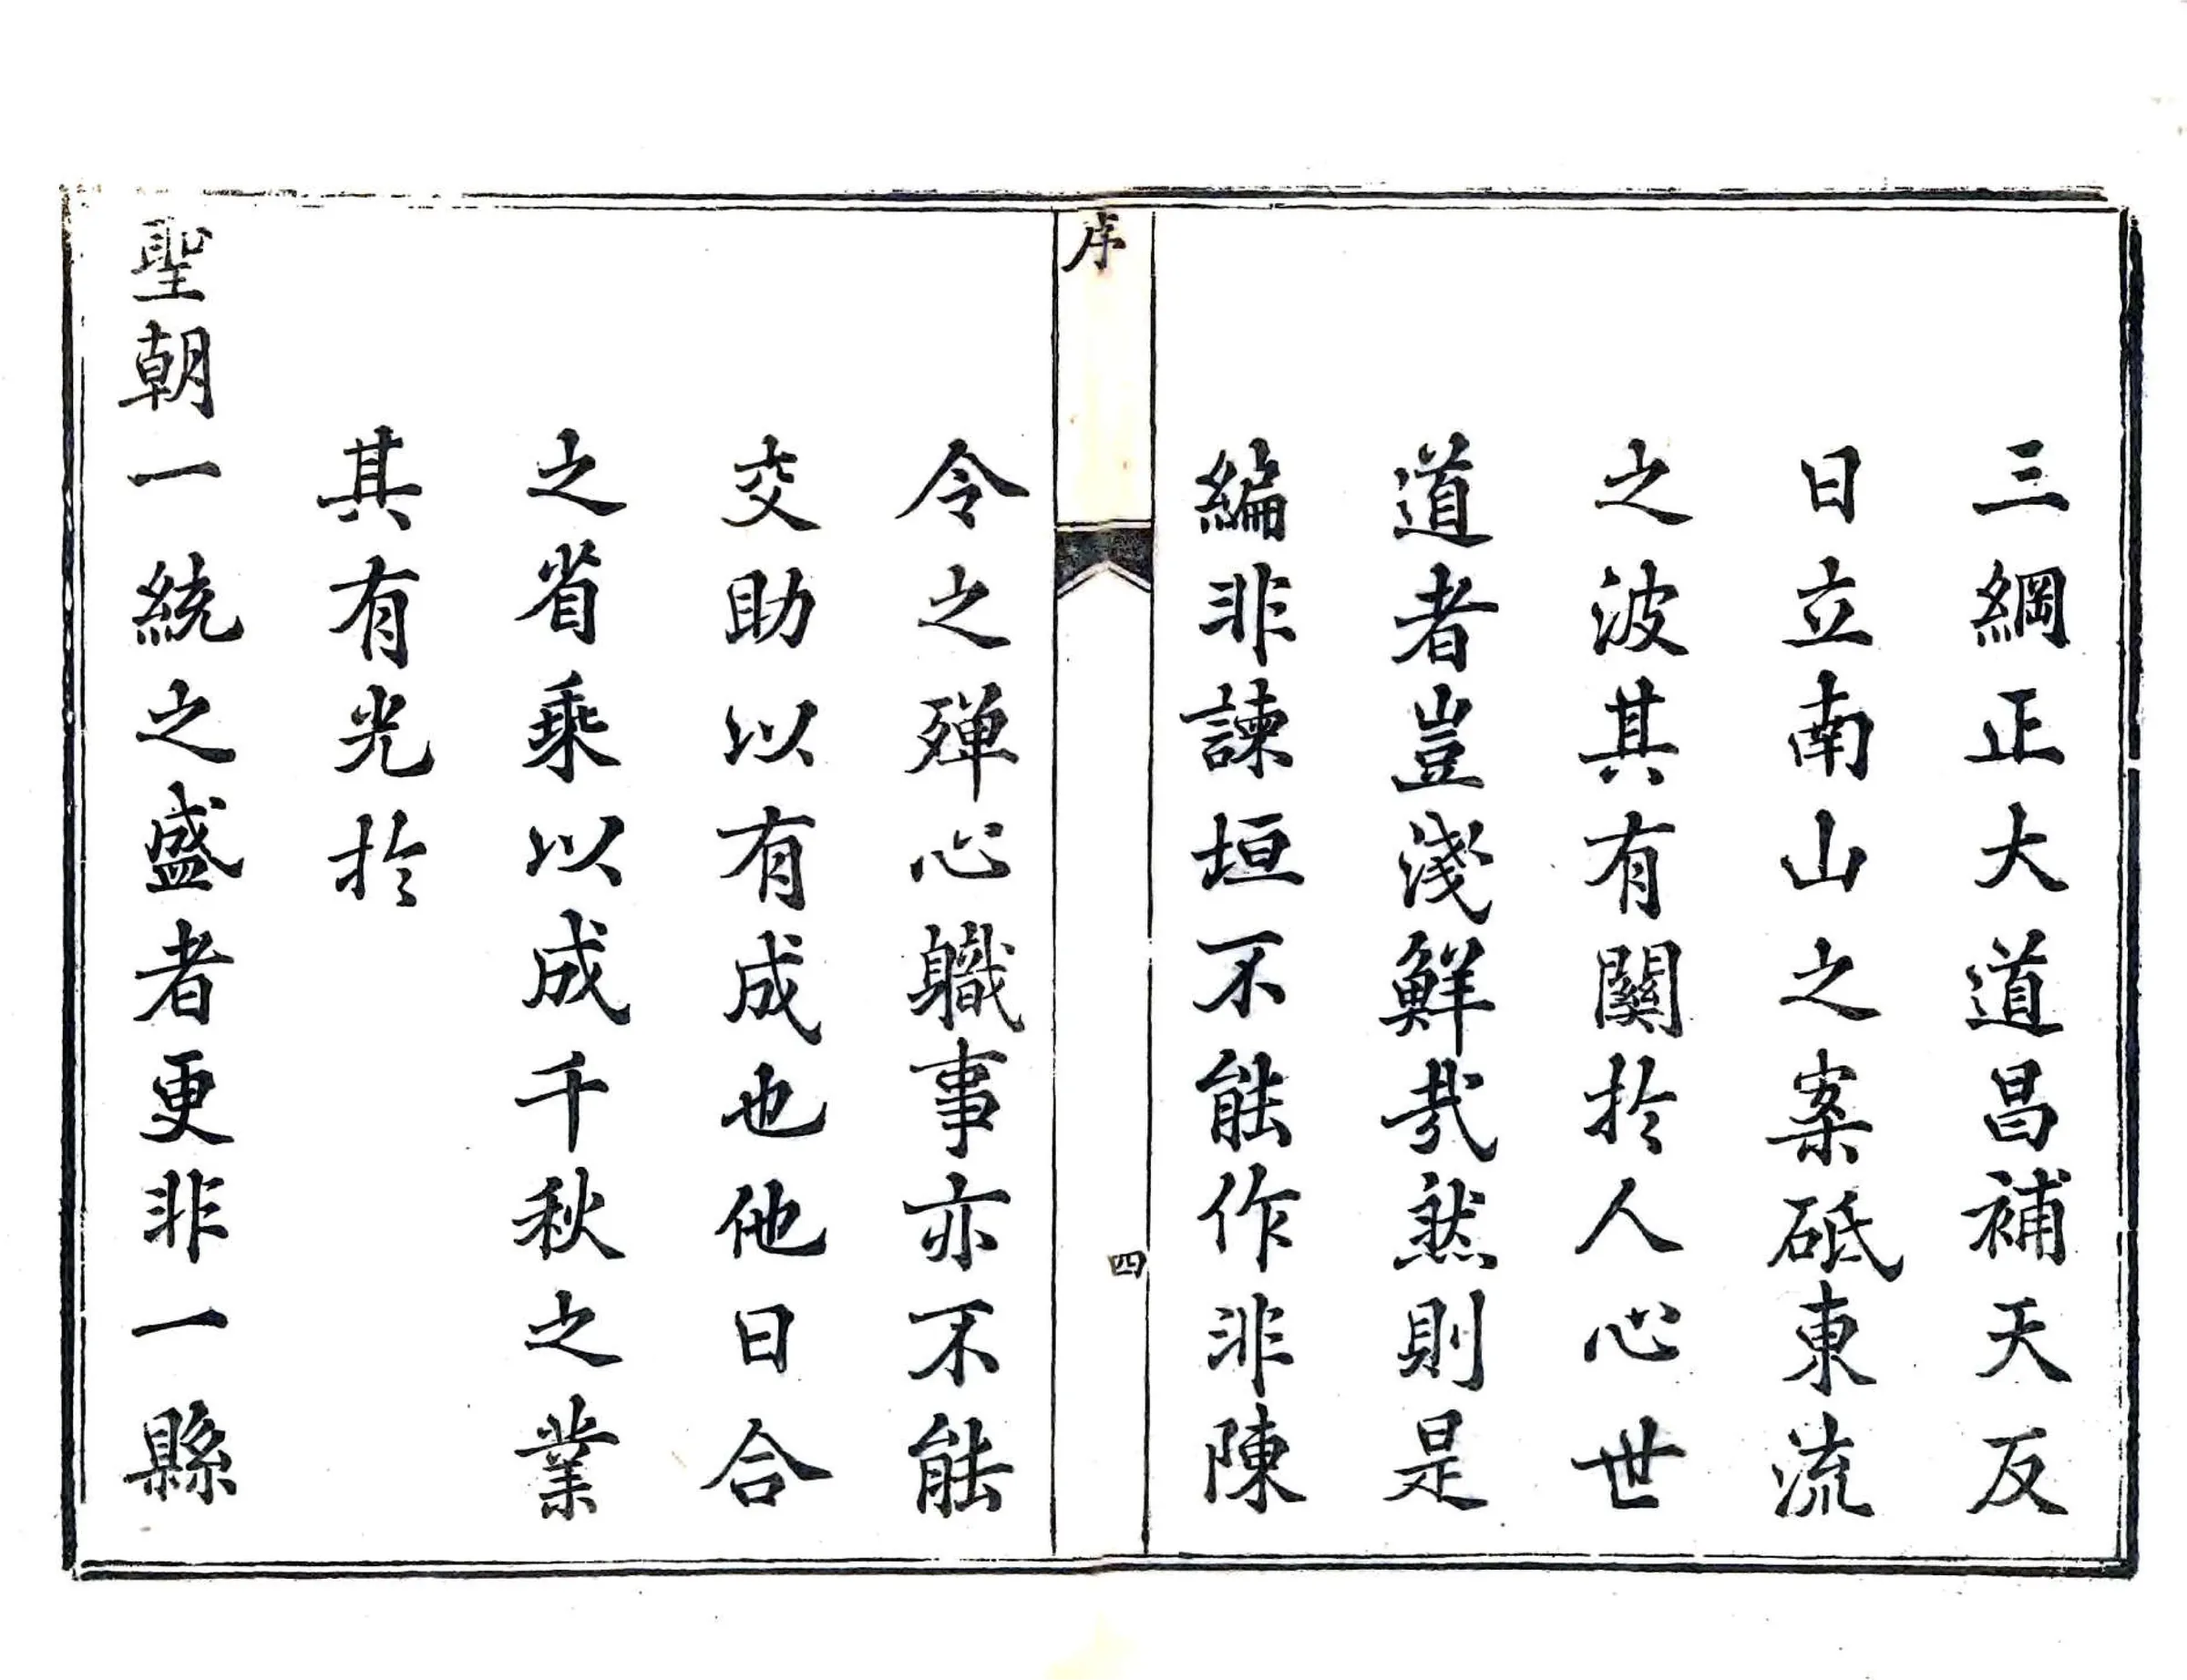 三綱正大道昌補天反
日立南山之案砥東流
之波其有關於人心世
道者豈淺鮮哉然則是
編非諫垣不能作非陳
序
四
令之殫心職事亦不能
交助以有成也他日合
之省乘以成千秋之業
其有光於
聖朝一統之盛者更非一縣